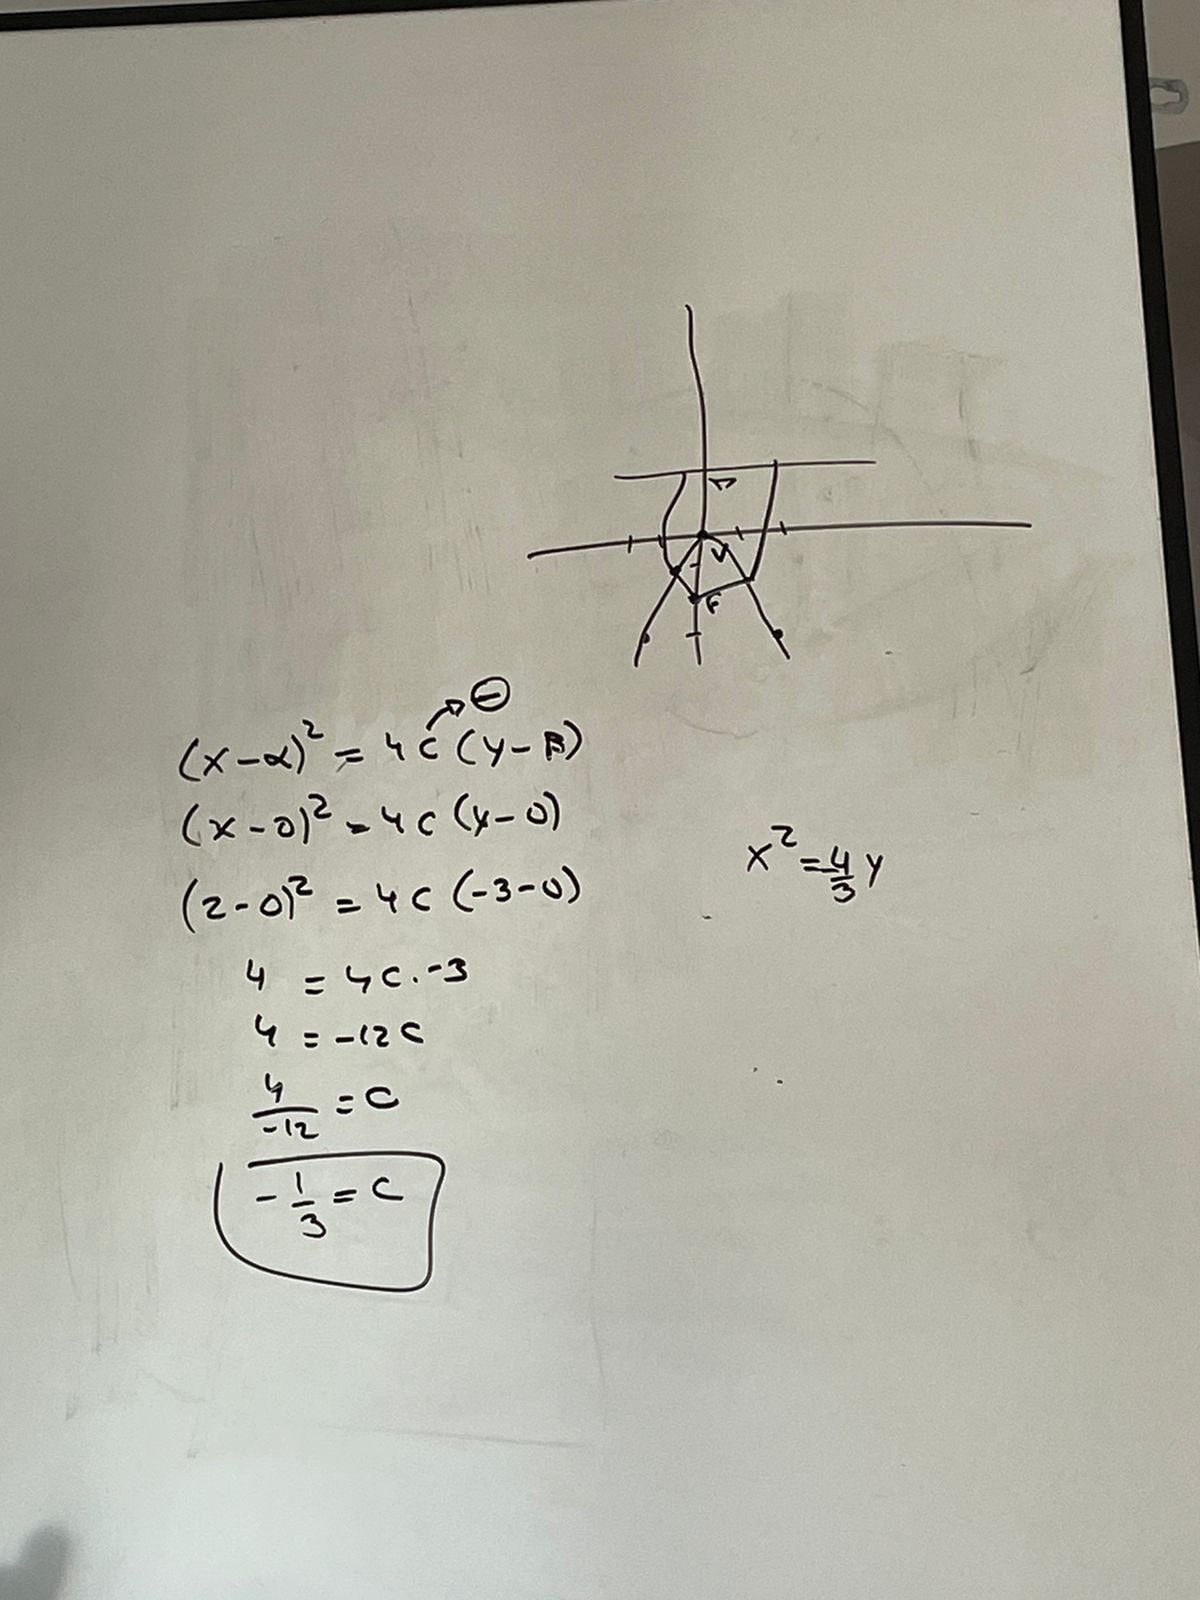 V
F
⊖
(x-α)² = 4c(y-β)
(x-0)² = 4c(y-0)
(2-0)² = 4c(-3-0)
4 = 4c.-3
4 = -12c
4/-12 = c
-1/3 = c
x² = 4/3 y